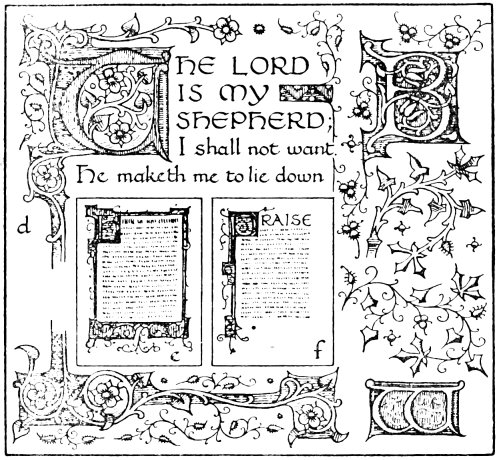 THE LORD
IS MY
SHEPHERD;
I shall not want
He maketh me to lie down
d
PRAISE
e
f
B